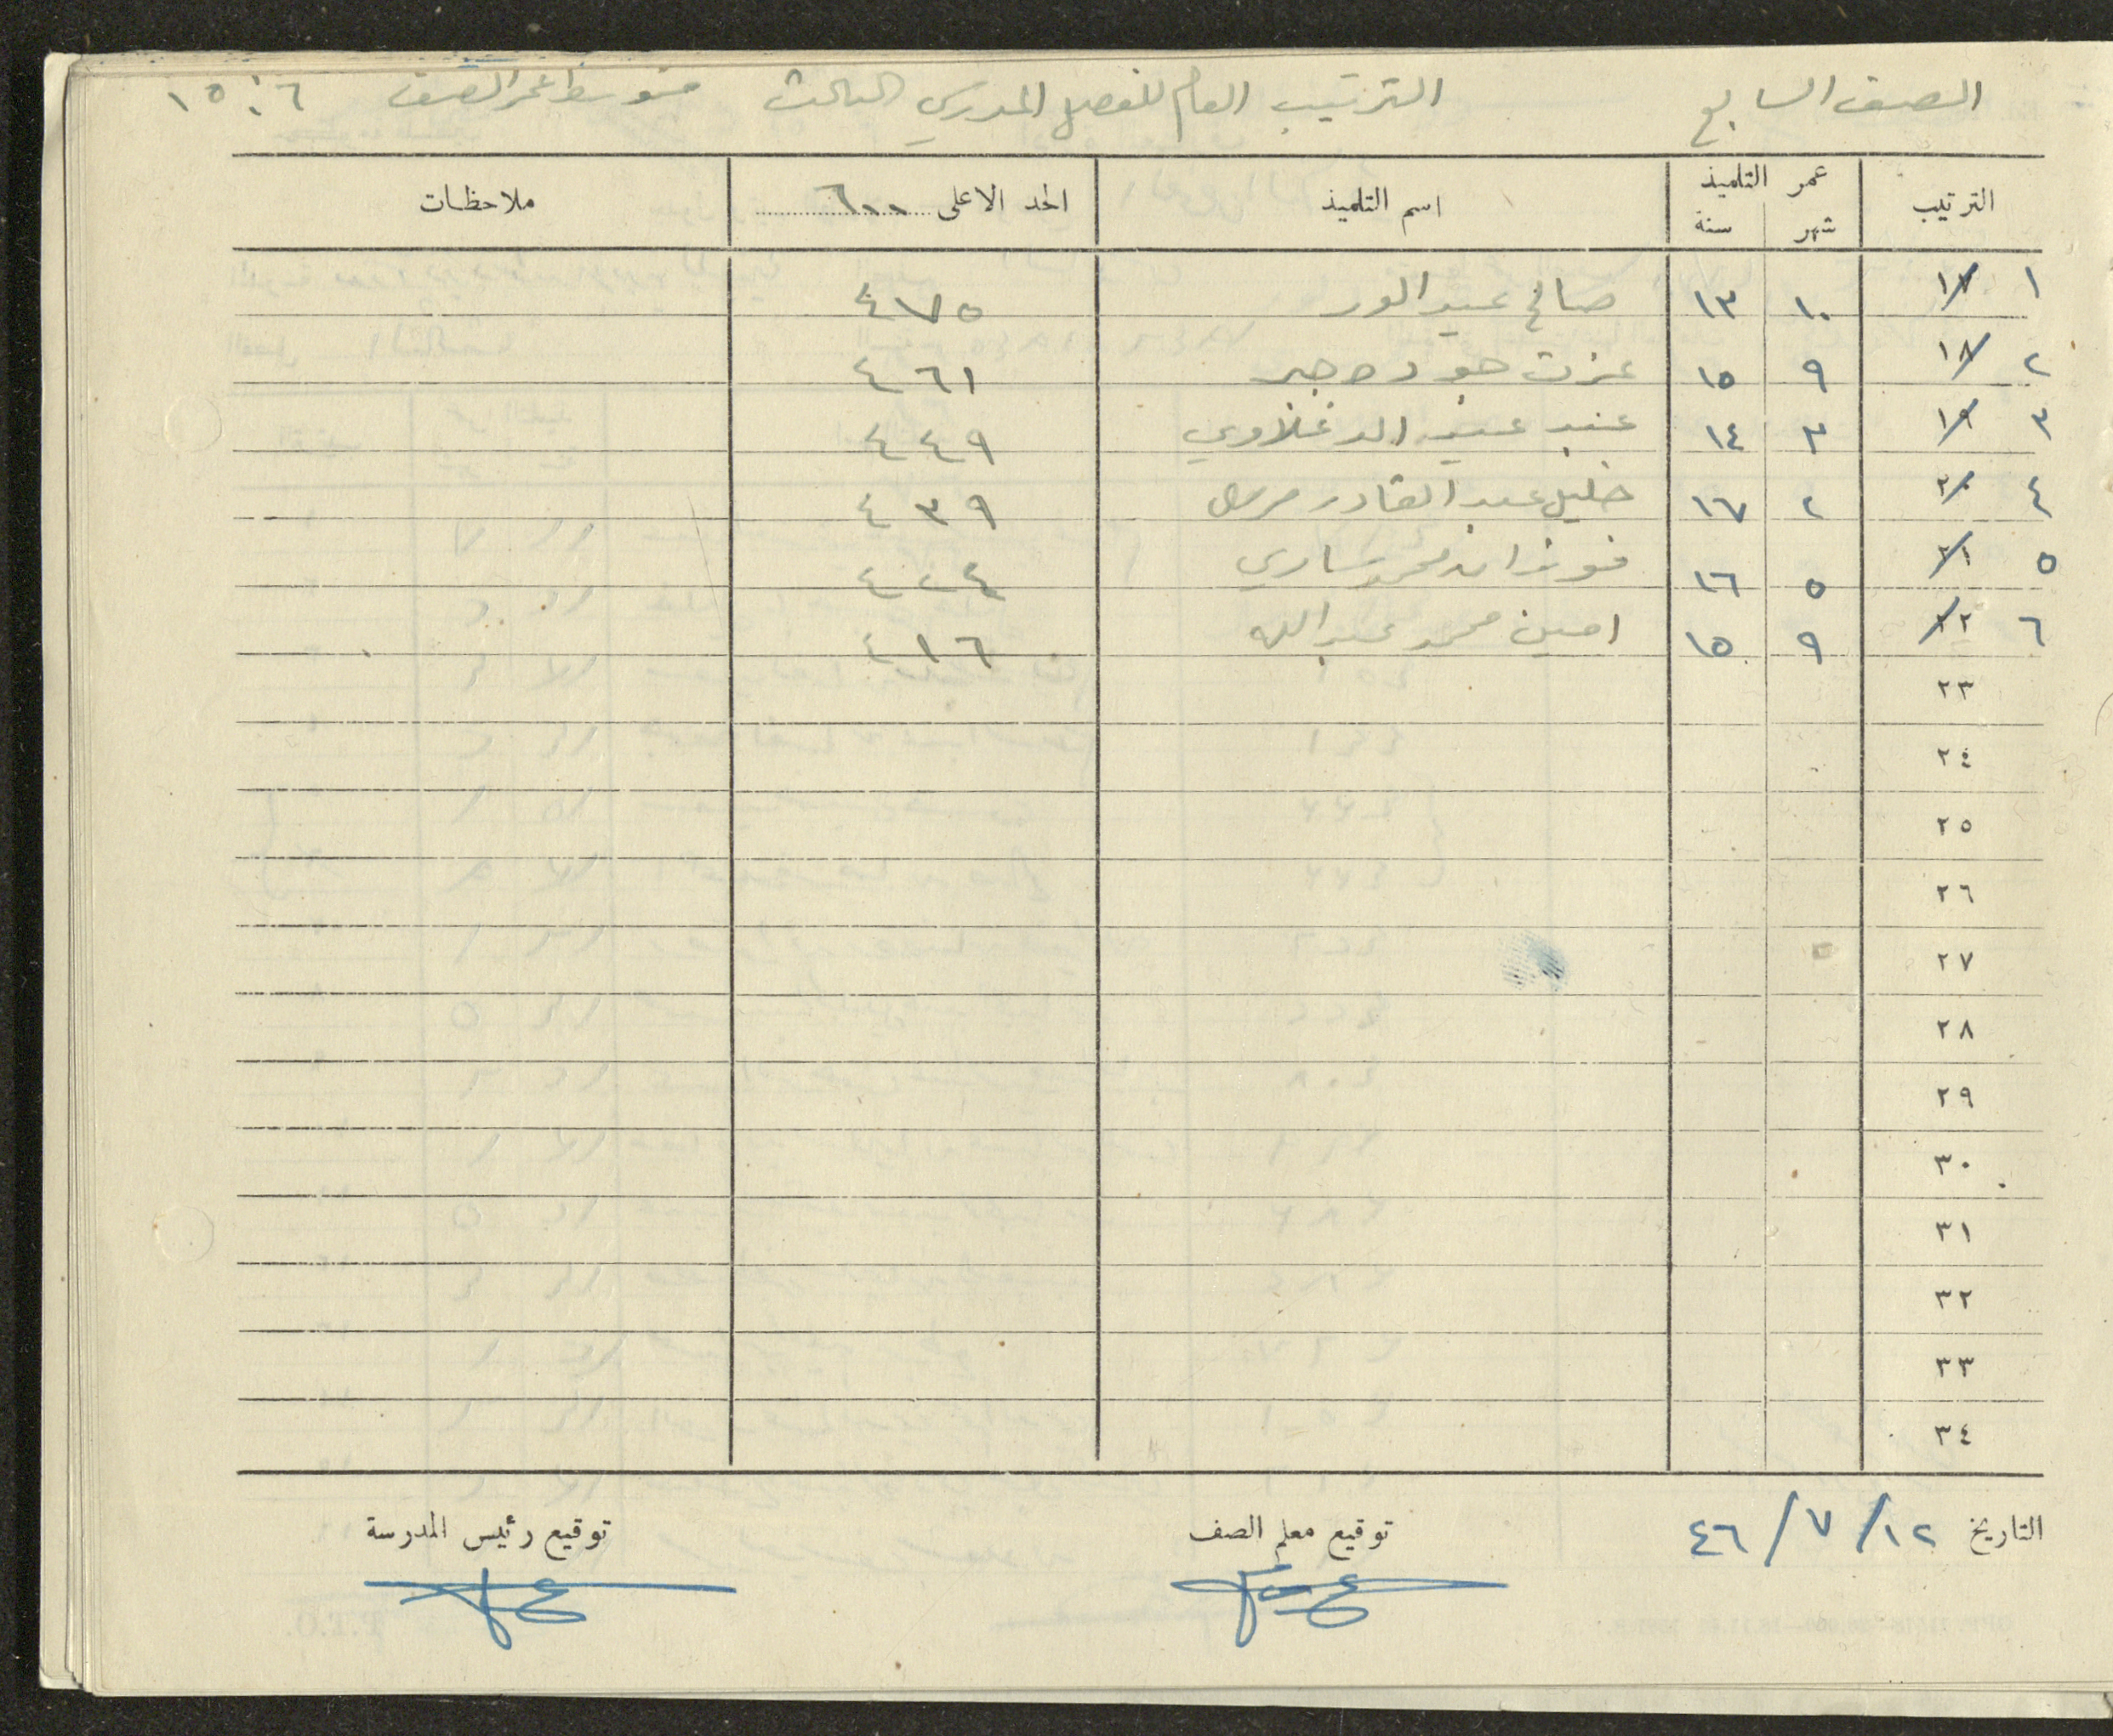 الصف السابع الترتيب العام للفصل المدرسي الثالث متوسط عمر الصف ٦ : ١٥
الترتيب عمر التلميذ اسم التلميذ الحد الاعلى ٦٠٠ ملاحظات
شهر سنة
١ ١٧ ١٠ ١٣ صالح عبد ٤٧٥
٢ ١٨ ٩ ١٥ عزت جبر ٤٦١
٣ ١٩ ٣ ١٤ ٤٤٩
٤ ٢٠ ٢ ١٧ خليل عبد القادر ٤٣٩
٥ ٢١ ٥ ١٦ محمد ساري ٤٢٤
٦ ٢٢ ٩ ١٥ امين محمد عبدالله ٤١٦
٢٣
٢٤
٢٥
٢٦
٢٧
٢٨
٢٩
٣٠
٣١
٣٢
٣٣
٣٤
التاريخ ١٢/٧/٤٦ توقيع معلم الصف توقيع رئيس المدرسة